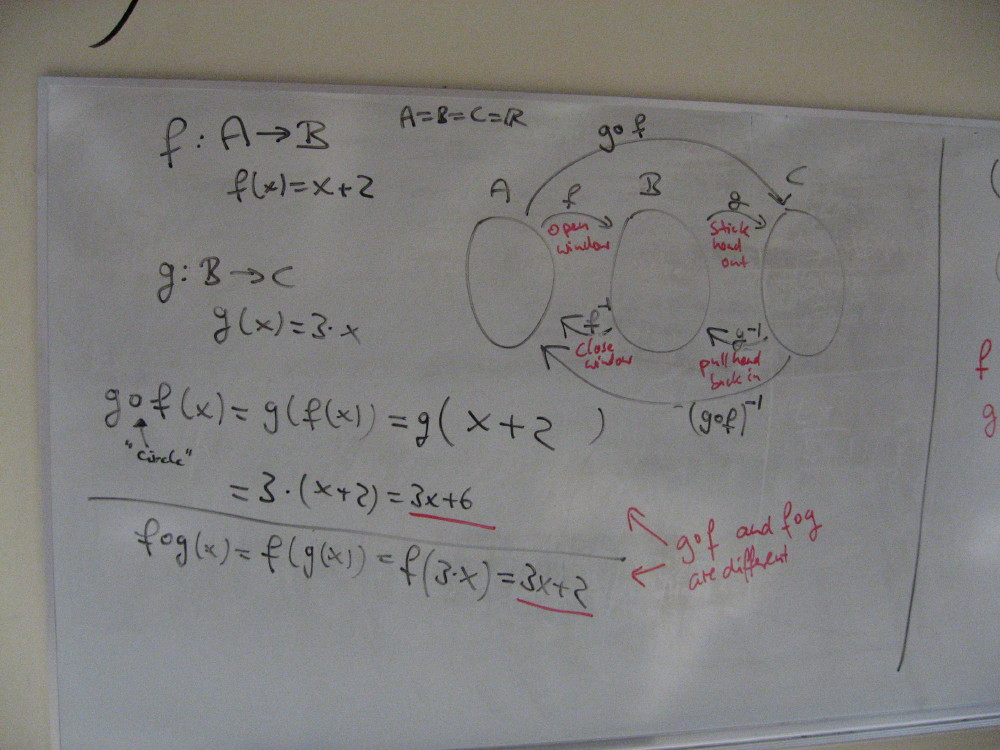 f: A → B
f(x) = x+2
A=B=C=ℝ
g: B → C
g(x) = 3·x
g∘f
A
B
C
f
open
window
g
stick
head
out
f⁻¹
close
window
g⁻¹
pull head
back in
(g∘f)⁻¹
g∘f(x) = g(f(x)) = g( x+2 )
"circle"
= 3·(x+2) = 3x+6
f∘g(x) = f(g(x)) = f(3·x) = 3x+2
g∘f and f∘g
are different
f
g